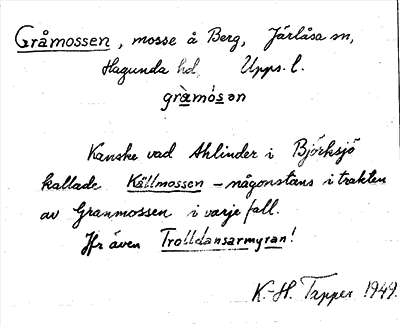 Gråmossen, mosse å Berg, Järlåsa sn,
Hagunda hd, Upps. l.
gràmósən
Kanske vad Ahlinder i Björksjö
kallade Källmossen – någonstans i trakten
av Granmossen i varje fall.
Jfr även Trolldansarmyran!
K.-H. Tapper 1949.